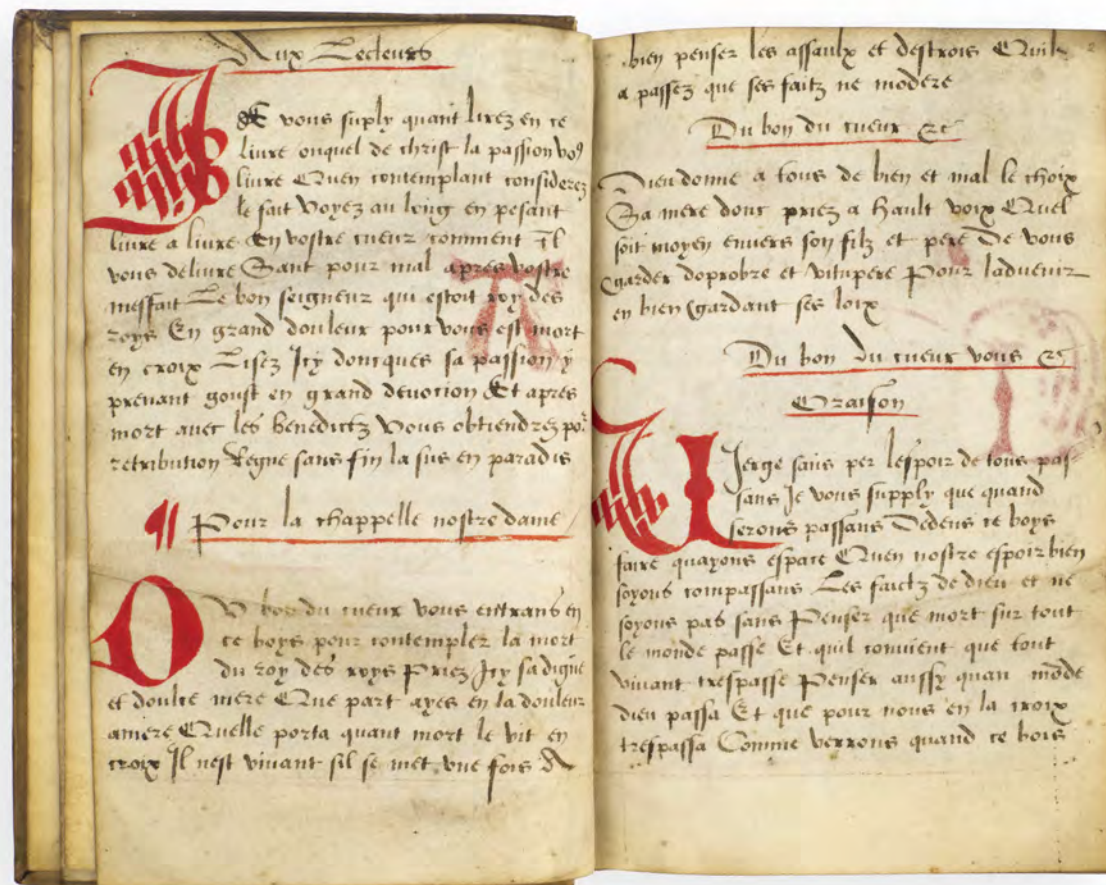 Aux Lecteurs
JE vous suply quant lirez en ce
livre onquel de christ la passion vo9
livre Quen contemplant considerez
le fait Voyez au long en pesant
livre a livre En vostre cueur comment Il
vous delivre Sant pour mal apres vostre
meffait Le bon seigneur qui estoit roy des
roys En grand douleur pour vous est mort
en croix Lisez Icy doncques sa passion y
prenant goust en grand devotion Et apres
mort avec les benedictz Vous obtiendrez por
retribution Regne sans fin la sus en paradis
¶ Pour la chappelle nostre dame
DU bon du cueur vous entrans en
ce boys pour contempler la mort
du roy des roys Priez Icy sa digne
et doulce mere Que part ayes en la douleur
amere Quelle porta quant mort le vit en
croix Il nest vivant sil se met une fois A
bien penser les assaulx et destrois Quil
a passez que ses faitz ne modere
Du bon du cueur &c
Dieu donne a tous de bien et mal le choix
Sa mere donc priez a hault voix Quel
soit moyen envers son filz et pere De vous
garder doprobre et vitupere Pour ladvenir
en bien gardant ses loix
Du bon du cueur vous &c
Oraison
VIerge sans per lespoir de tous pas
sans Je vous supply que quand
serons passans Dedens ce boys
faire quayons espace Quen nostre espoir bien
soyons compassans Les faictz de dieu et ne
soyons pas sans Penser que mort sur tout
le monde passe Et quil convient que tout
vivant trespasse Penser aussy quan mode
dieu passa Et que pour nous en la croix
trespassa Comme verrons quand ce bois